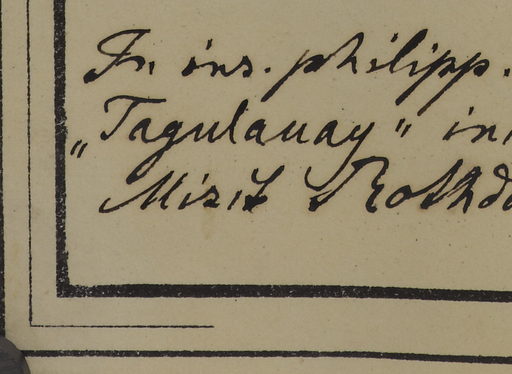 In ins. philipp.
„Tagulauay“ in
Misit Rothd